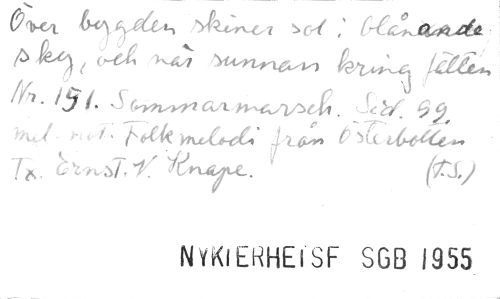 Över bygden skiner sol i blånande
sky, och när sunnan kring fälten
Nr. 151. Sommarmarsch. Sid. 99.
mel. not. Folkmelodi från Österbotten
Tx. Ernst. V. Knape. (F.S.)
NYKIERHEISF SGB 1955